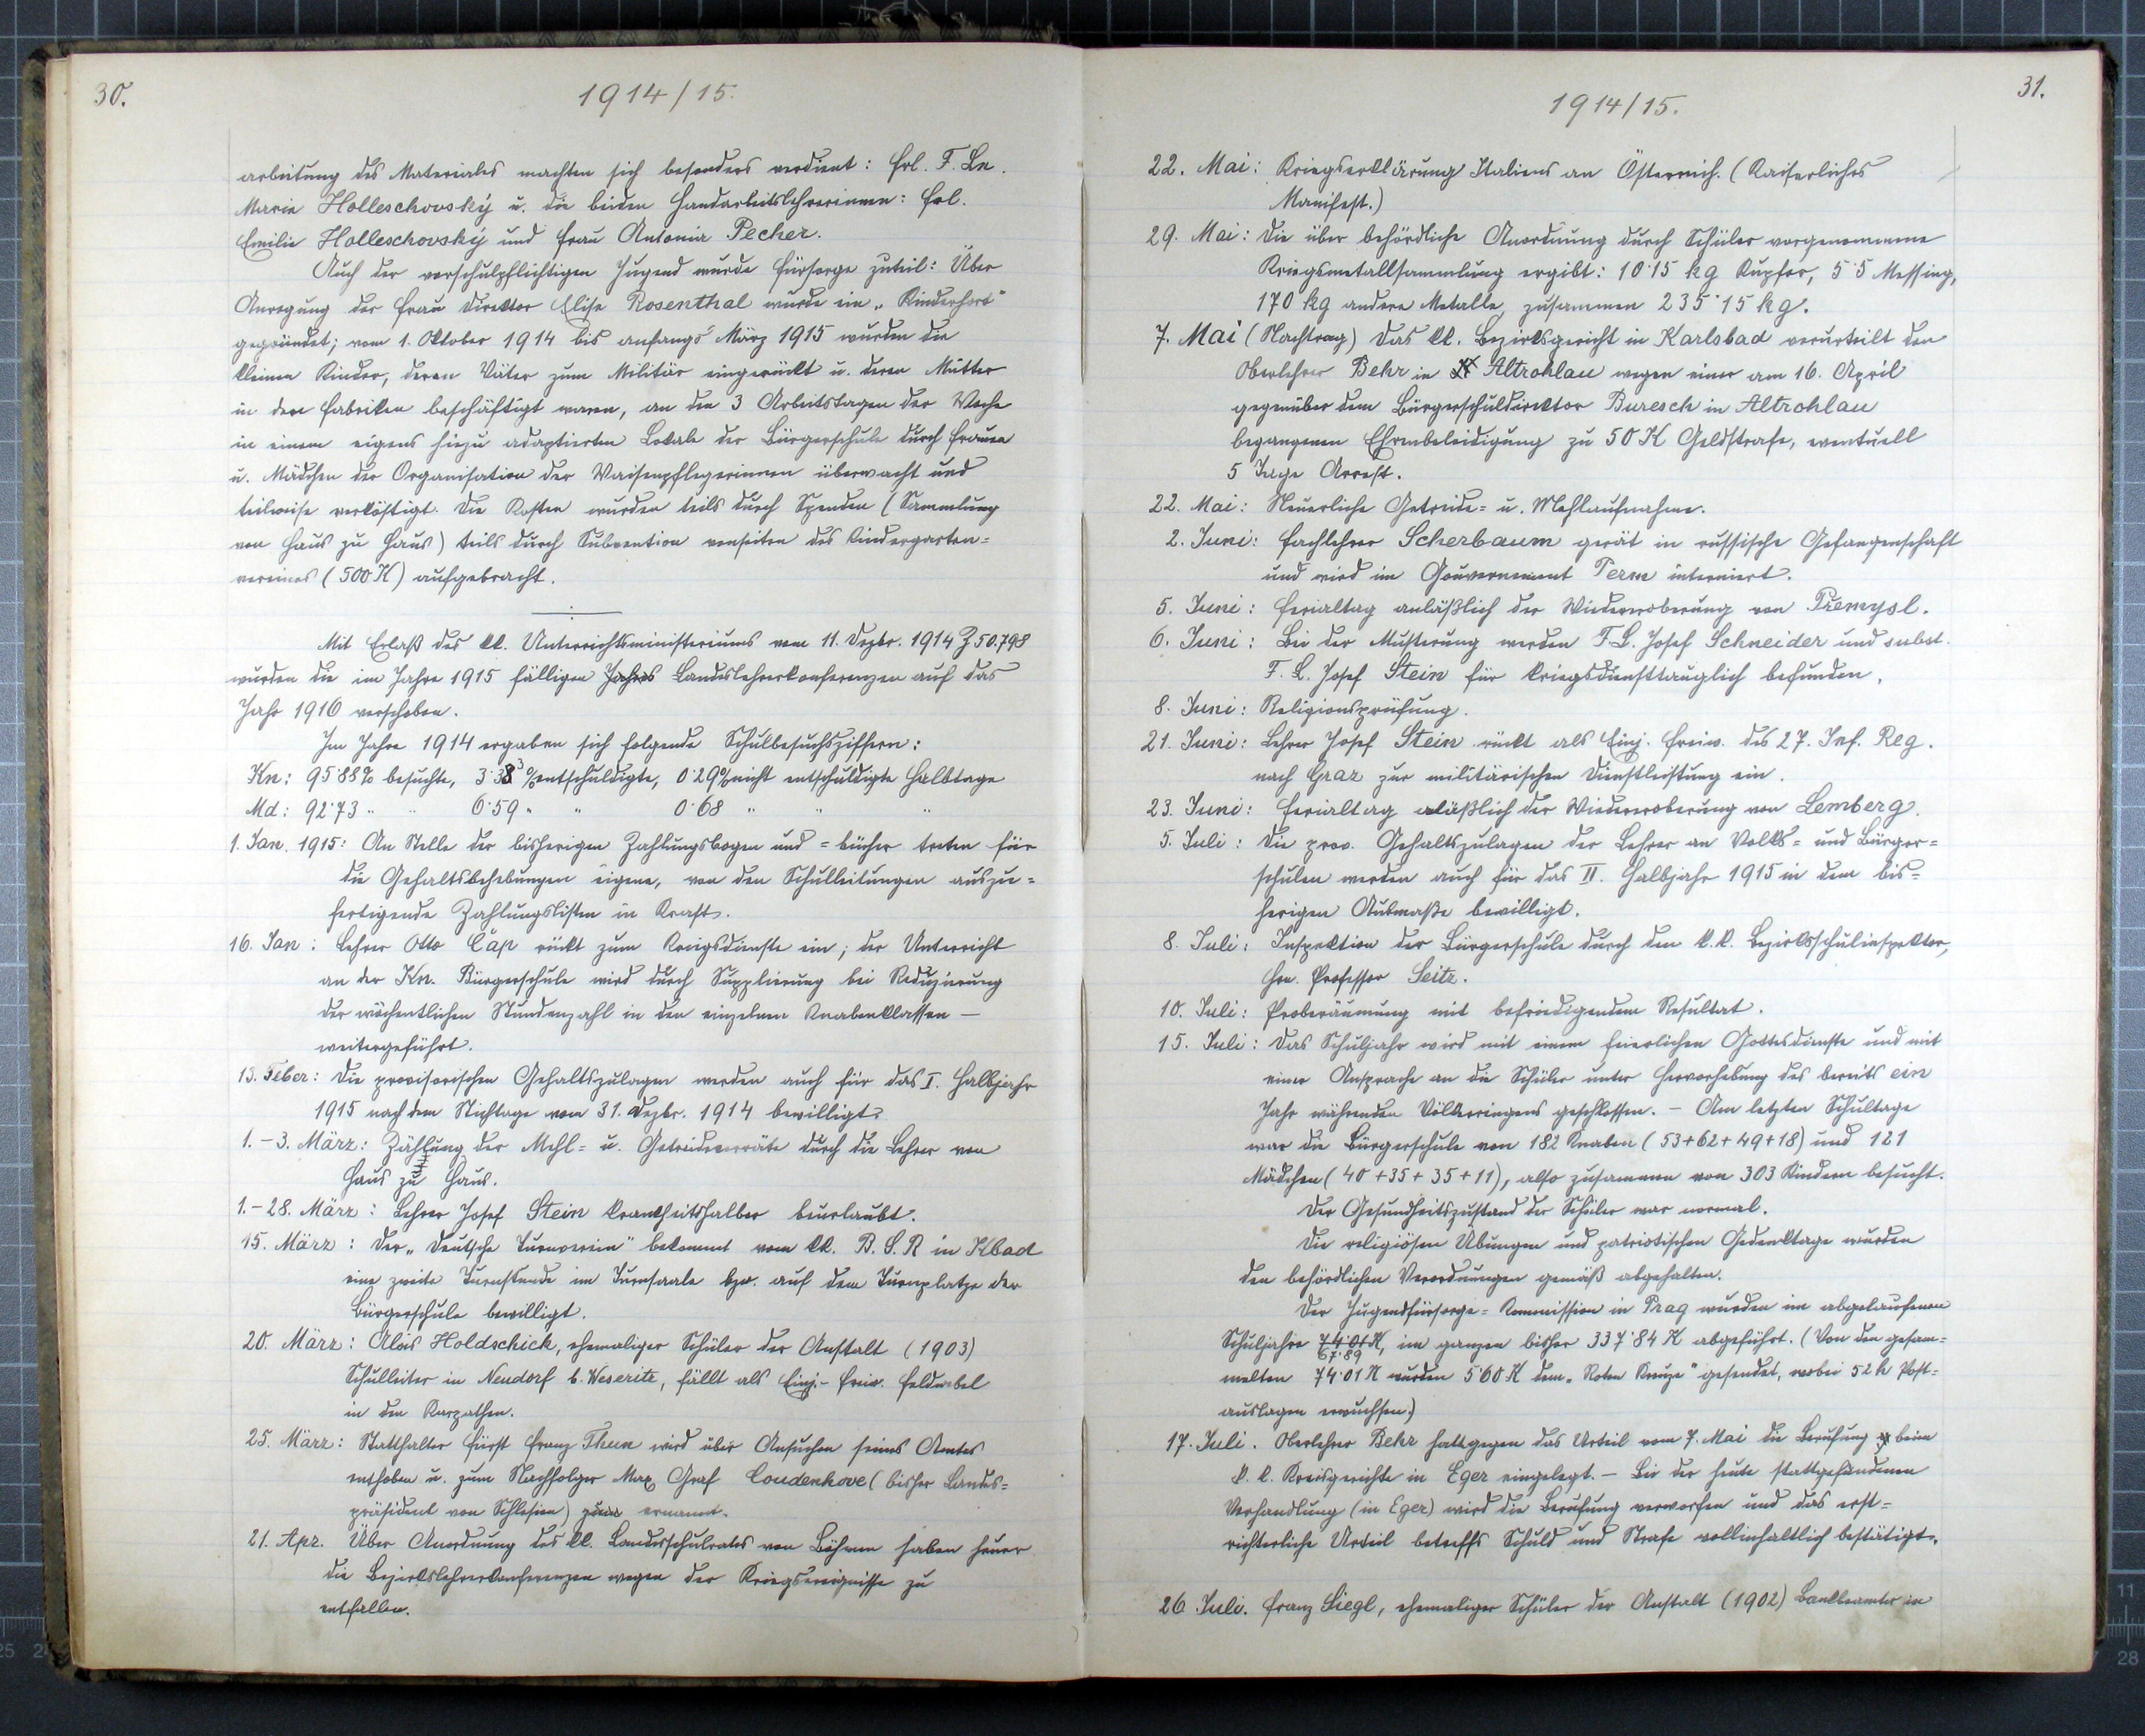 30.
1914/15.
arbeitung des Materiales machten sich besonders verdient: Frl. F. Ln.
Marie Holleschovský u. die beiden Handarbeitslehrerinnen: Frl.
Emilie Holleschovský und Frau Antonia Pecher.
Auch der vorschulpflichtigen Jugend wurde Fürsorge zuteil: Über
Anregung der Frau Direktor Elise Rosenthal wurde ein „Kinderhort"
gegründet; vom 1. Oktober 1914 bis anfangs März 1915 wurden die
kleinen Kinder, deren Väter zum Militär eingerückt u. deren Mütter
in den Fabriken beschäftigt waren, an den 3 Arbeitstagen der Woche
in einem eigens hiezu adaptierten Lokale der Bürgerschule durch Frauen
u. Mädchen der Organisation der Waisenpflegerinnen überwacht und
teilweise verköstigt. Die Kosten wurden teils durch Spenden (Sammlung
von Haus zu Haus) teils durch Subvention vonseiten des Kindergarten=
vereines (500 K) aufgebracht.
Mit Erlaß des kk. Unterrichtsministeriums vom 11. Dezbr. 1914 Z 50.798
wurden die im Jahre 1915 fälligen Jahres Landeslehrerkonferenzen auf das
Jahr 1916 verschoben.
Im Jahre 1914 ergaben sich folgende Schulbesuchsziffern:
Kn: 95·88% besuchte, 3·83 % entschuldigte, 0·29% nicht entschuldigte Halbtage
Md: 92·73 " " 6·59 " " 0·68 " " "
1. Jan. 1915: An Stelle der bisherigen Zahlungsbogen und =bücher treten für
die Gehaltsbehebungen eigene, von den Schulleitungen auszu=
fertigende Zahlungslisten in Kraft.
16. Jan: Lehrer Otto Čap rückt zum Kriegsdienste ein; der Unterricht
an der Kn. Bürgerschule wird durch Supplierung bei Reduzierung
der wöchentlichen Stundenzahl in den einzelnen Knabenklassen —
weitergeführt.
13. Feber: Die provisorischen Gehaltszulagen werden auch für das I. Halbjahr
1915 nach dem Stichtage vom 31. Dezbr. 1914 bewilligt.
1.-3. März: Zählung der Mehl= u. Getreidevorräte durch die Lehrer von
Haus zu Haus.
1.-28. März: Lehrer Josef Stein krankheitshalber beurlaubt.
15. März: Der „Deutsche Turnverein" bekommt vom kk. B. S. R in Kbad
eine zweite Turnstunde im Turnsaale bzw. auf dem Turnplatze der
Bürgerschule bewilligt.
20. März: Alois Holdschick, ehemaliger Schüler der Anstalt (1903)
Schulleiter in Neudorf b. Weseritz, fällt als Einj.-freiw. Feldwebel
in den Karpathen.
25. März: Statthalter Fürst Franz Thun wird über Ansuchen seines Amtes
enthoben u. zum Nachfolger Max Graf Coudenhove (bisher Landes=
präsident von Schlesien) ernannt.
21. Apr. Über Anordnung des kk. Landesschulrates von Böhmen haben heuer
die Bezirkslehrerkonferenzen wegen der Kriegsereignisse zu
entfallen.
31.
1914/15.
22. Mai: Kriegserklärung Italiens an Österreich. (Kaiserliches
Manifest.)
29. Mai: Die über behördliche Anordnung durch Schüler vorgenommene
Kriegsmetallsammlung ergibt: 10·15 kg Kupfer, 5·5 Messing,
170 kg andere Metalle, zusammen 235·15 kg.
7. Mai (Nachtrag) Das kk. Bezirksgericht in Karlsbad verurteilt den
Oberlehrer Behr in Altrohlau wegen einer am 16. April
gegenüber dem Bürgerschuldirektor Buresch in Altrohlau
begangenen Ehrenbeleidigung zu 50 K Geldstrafe, eventuell
5 Tage Arrest.
22. Mai: Neuerliche Getreide= u. Mehlaufnahme.
2. Juni: Fachlehrer Scherbaum gerät in russische Gefangenschaft
und wird im Gouvernement Perm interniert.
5. Juni: Ferialtag anläßlich der Wiedereroberung von Přemysl.
6. Juni: Bei der Musterung werden F. L. Josef Schneider und subst.
F. L. Josef Stein für kriegsdiensttauglich befunden.
8. Juni: Religionsprüfung.
21. Juni: Lehrer Josef Stein rückt als Einj. Freiw. des 27. Inf. Reg.
nach Graz zur militärischen Dienstleistung ein.
23. Juni: Ferialtag aläßlich der Wiedereroberung von Lemberg.
5. Juli: Die prov. Gehaltszulagen der Lehrer an Volks= und Bürger=
schulen werden auch für das II. Halbjahr 1915 in dem bis=
herigen Ausmaße bewilligt.
8. Juli: Inspektion der Bürgerschule durch den k.k. Bezirksschulinspektor,
Hrn. Professor Seitz.
10. Juli: Proberäumung mit befriedigendem Resultat.
15. Juli: Das Schuljahr wird mit einem feierlichen Gottesdienste und mit
einer Ansprache an die Schüler unter Hervorhebung des bereits ein
Jahr währenden Völkerringens geschlossen. — Am letzten Schultage
war die Bürgerschule von 182 Knaben (53+62+49+18) und 121
Mädchen (40+35+35+11), also zusammen von 303 Kindern besucht.
Der Gesundheitszustand der Schüler war normal.
Die religiösen Übungen und patriotischen Gedenktage wurden
den behördlichen Verordnungen gemäß abgehalten.
Der Jugendfürsorge=Kommission in Prag wurden im abgelaufenen
Schuljahre 74·01 K, im ganzen bisher 337·84 K abgeführt. (Von den gesam=
67·89
melten 74·01 K wurden 5·60 K dem „Roten Kreuze" gesendet, wobei 52 h Post=
auslagen erwuchsen.)
17. Juli. Oberlehrer Behr hatt gegen das Urteil vom 7. Mai die Berufung beim
k. k. Kreisgerichte in Eger eingelegt. — Bei der heute stattgefundenen
Verhandlung (in Eger) wird die Berufung verworfen und das erst=
richterliche Urteil betreffs Schuld und Strafe vollinhaltlich bestätigt.
26 Juli. Franz Siegl, ehemaliger Schüler der Anstalt (1902) Bankbeamter in
11
28
25